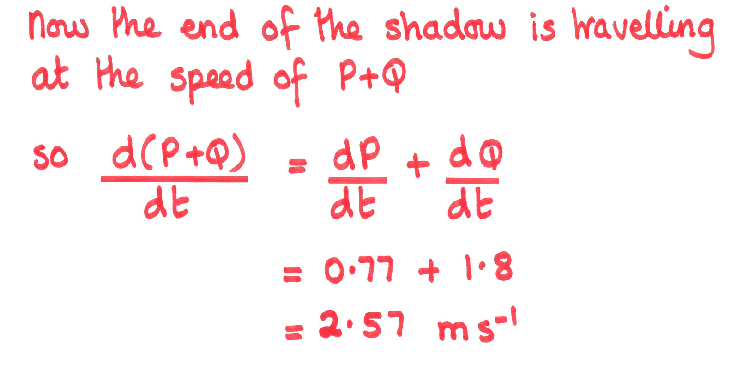 Now the end of the shadow is travelling
at the speed of P+Q
so d(P+Q)/dt = dP/dt + dQ/dt
= 0·77 + 1·8
= 2·57 ms⁻¹